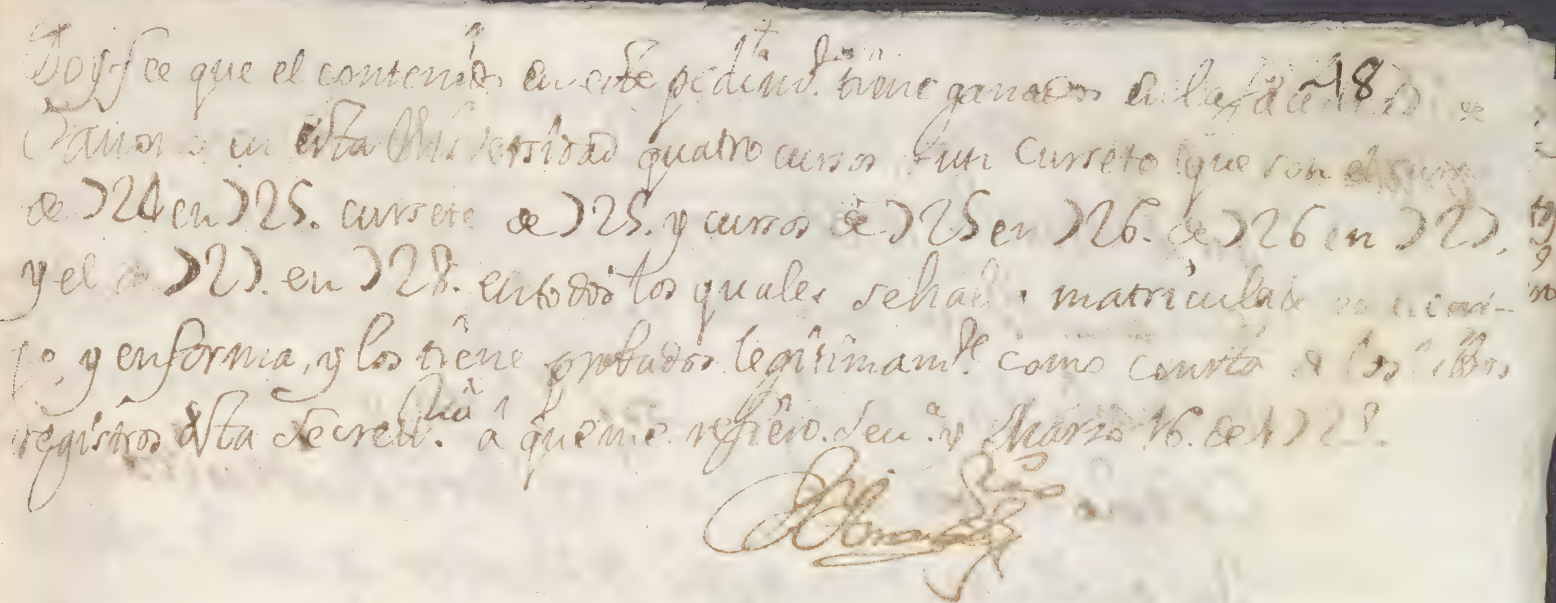 Doy fee que el contenido en este pedim.to tiene ganados en la 18 de
en esta Universidad quatro cursos y un Cursete que son el curso
de 724 en 725. cursete de 725. y cursos de 725 en 726. de 726 en 727,
y el de 727. en 728. en todos los quales se halla matriculado
y en forma, y los tiene probados legitimam.te como consta de los libros
registros desta Secret.ria a que me refiero. Sev.a y Marzo 16. de 1728.